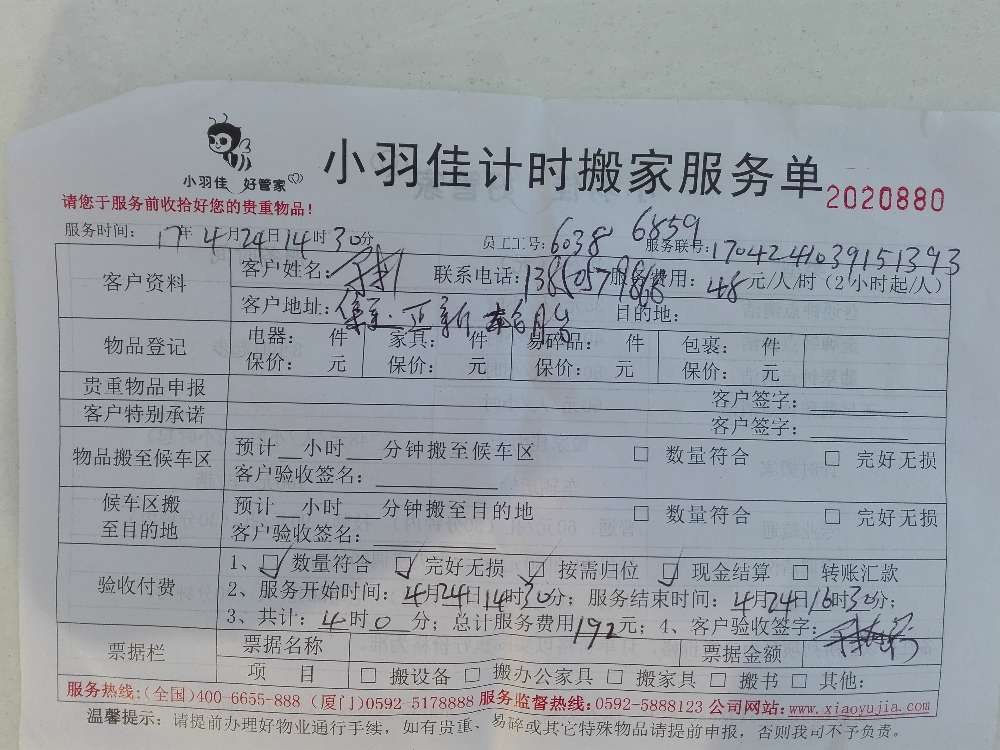 小羽佳 好管家
小羽佳计时搬家服务单
2020880
请您于服务前收拾好您的贵重物品!
服务时间: 17年4月24日14时30分 员工工号: 6038 6859 服务联号: 1704241039151393
客户资料
客户姓名: 联系电话: 服务费用: 48元/人/时(2小时起/人)
客户地址: 目的地:
物品登记
电器: 件 家具: 件 易碎品: 件 包裹: 件
保价: 元 保价: 元 保价: 元 保价: 元
贵重物品申报 客户签字:
客户特别承诺 客户签字:
物品搬至候车区
预计__小时___分钟搬至候车区 □ 数量符合 □ 完好无损
客户验收签名:
候车区搬至目的地
预计__小时___分钟搬至目的地 □ 数量符合 □ 完好无损
客户验收签名:
验收付费
1、☑ 数量符合 ☑ 完好无损 ☑ 按需归位 ☑ 现金结算 □ 转账汇款
2、服务开始时间: 4月24日14时30分; 服务结束时间: 4月24日16时30分;
3、共计: 4时0分; 总计服务费用192元; 4、客户验收签字:
票据栏
票据名称 票据金额
项 目 □ 搬设备 □ 搬办公家具 □ 搬家具 □ 搬书 □ 其他:
服务热线:(全国)400-6655-888 (厦门)0592-5178888 服务监督热线:0592-5888123 公司网站:www.xiaoyujia.com
温馨提示: 请提前办理好物业通行手续, 如有贵重、易碎或其它特殊物品请提前申报, 否则我司不予负责。